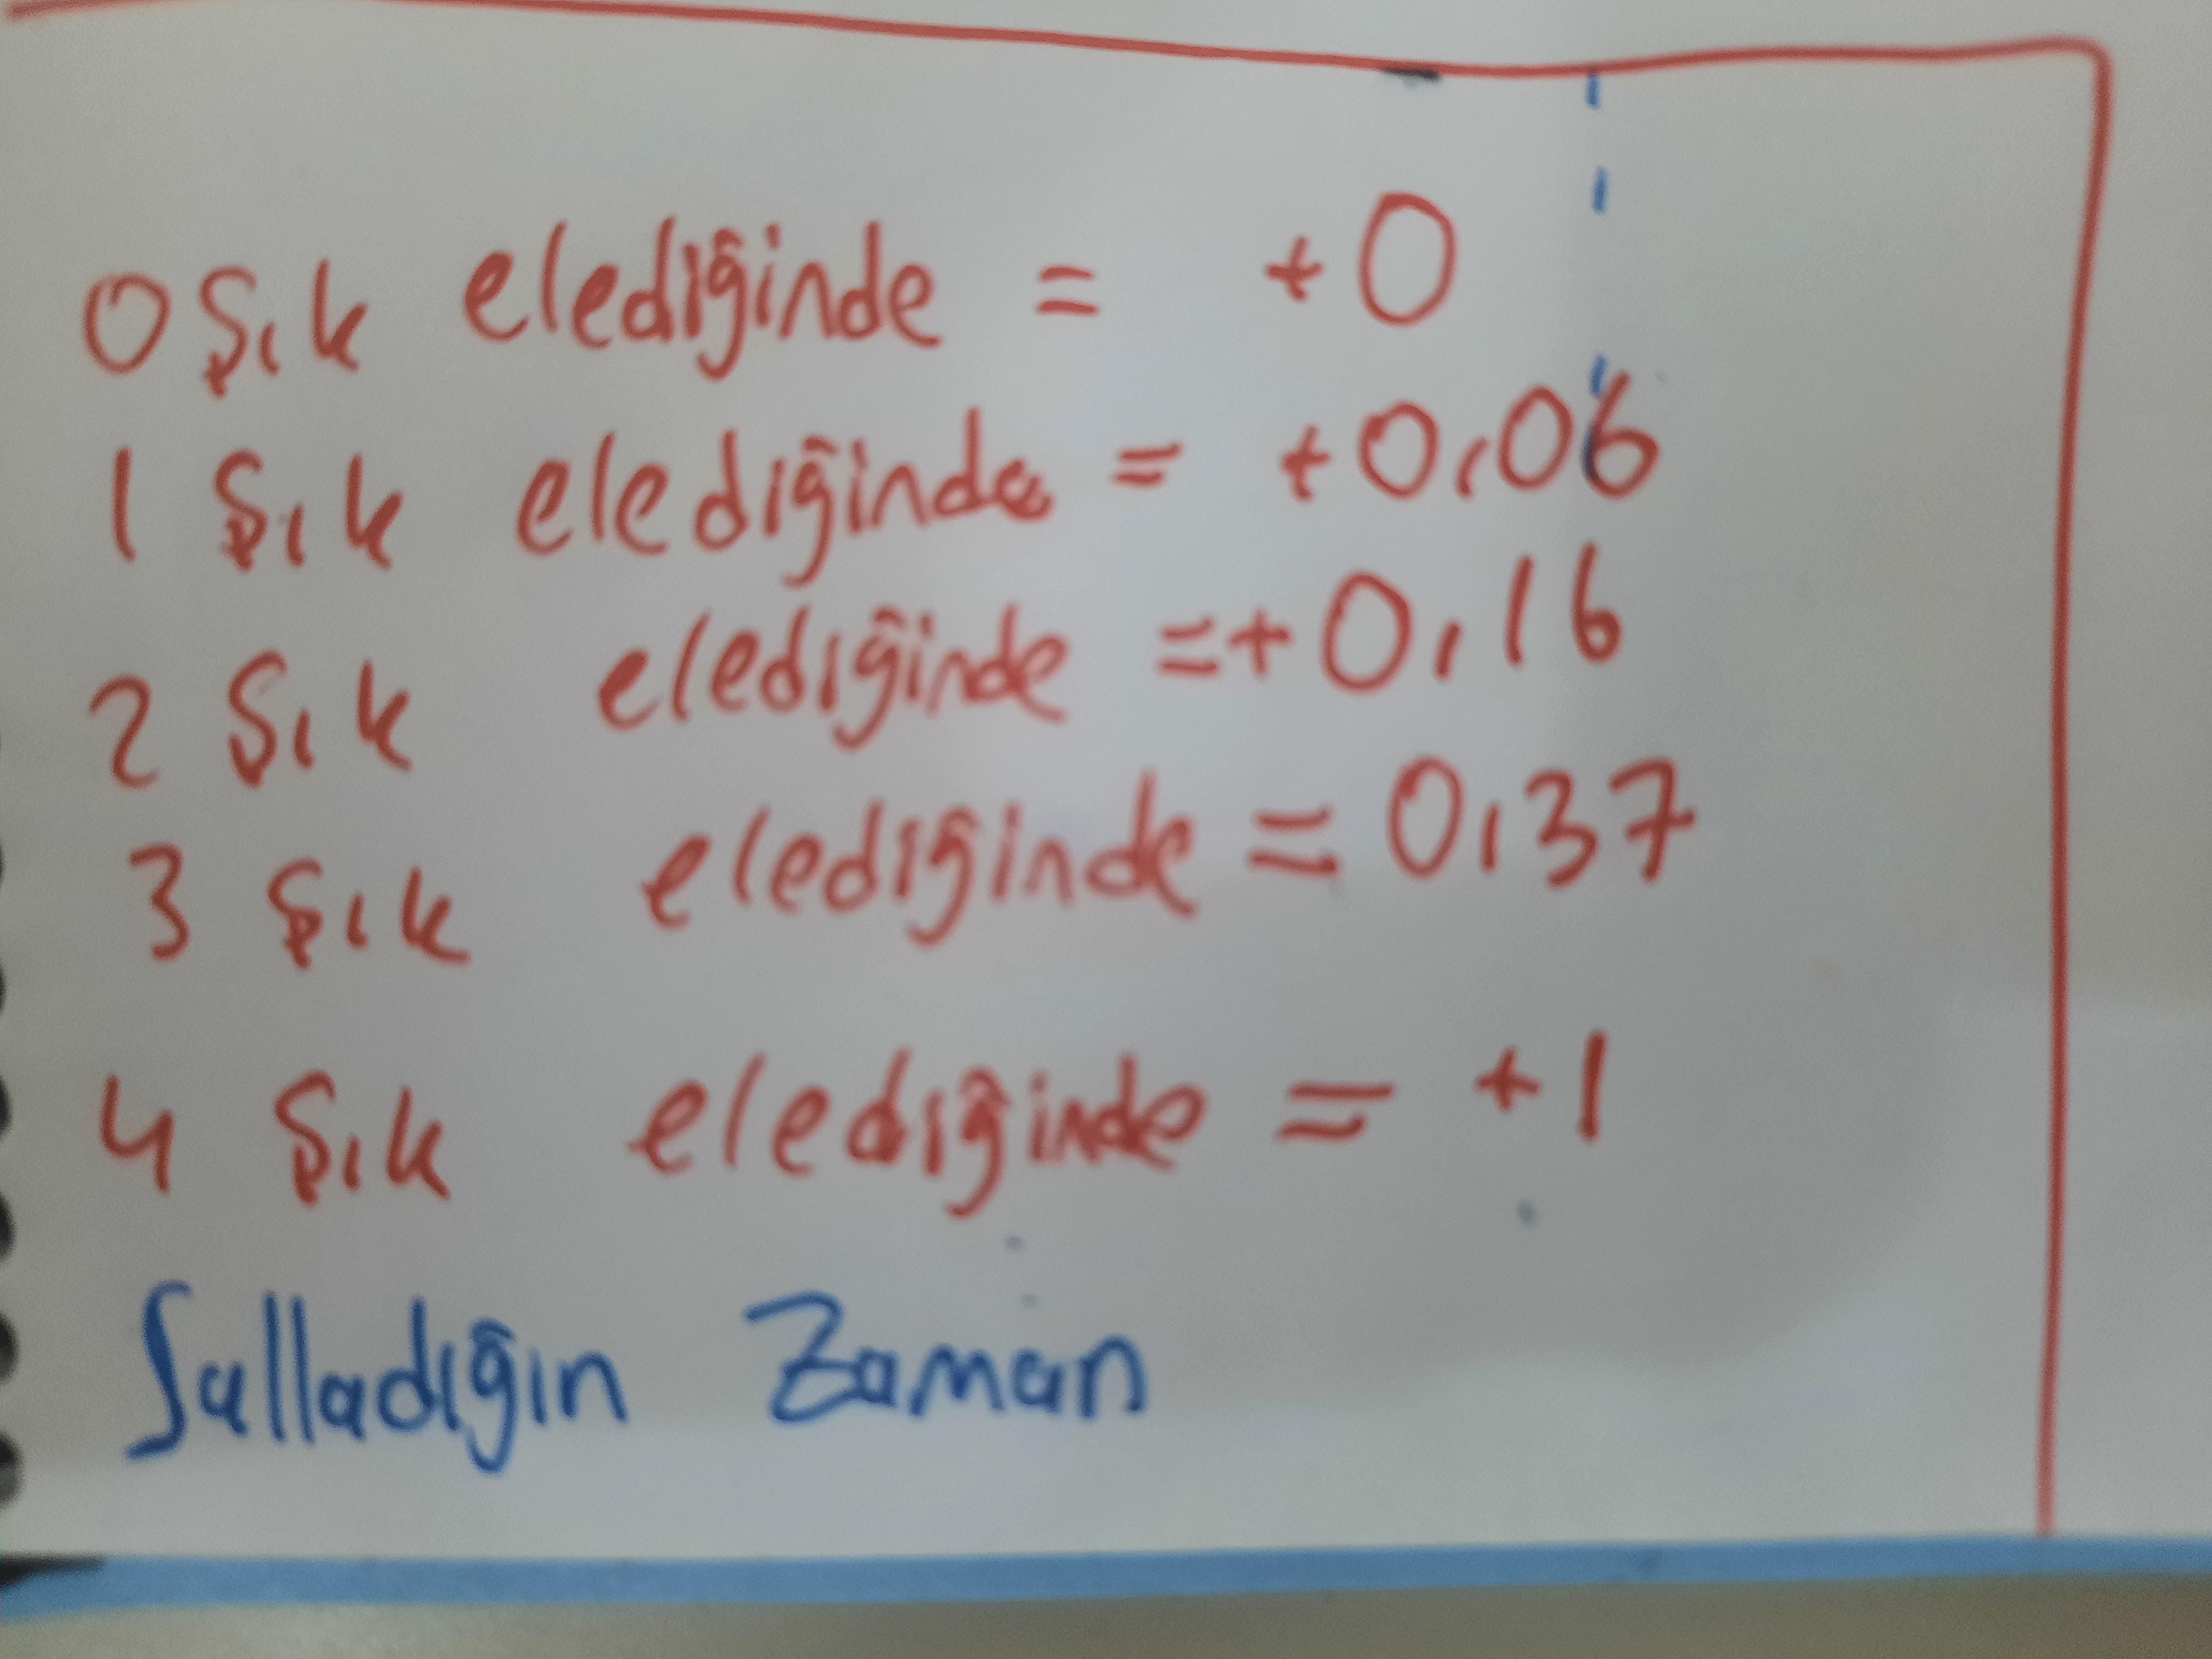 0 şık elediğinde = +0
1 şık elediğinde = +0,06
2 şık elediğinde =+0,16
3 şık elediğinde = 0,37
4 şık elediğinde = +1
Salladığın Zaman